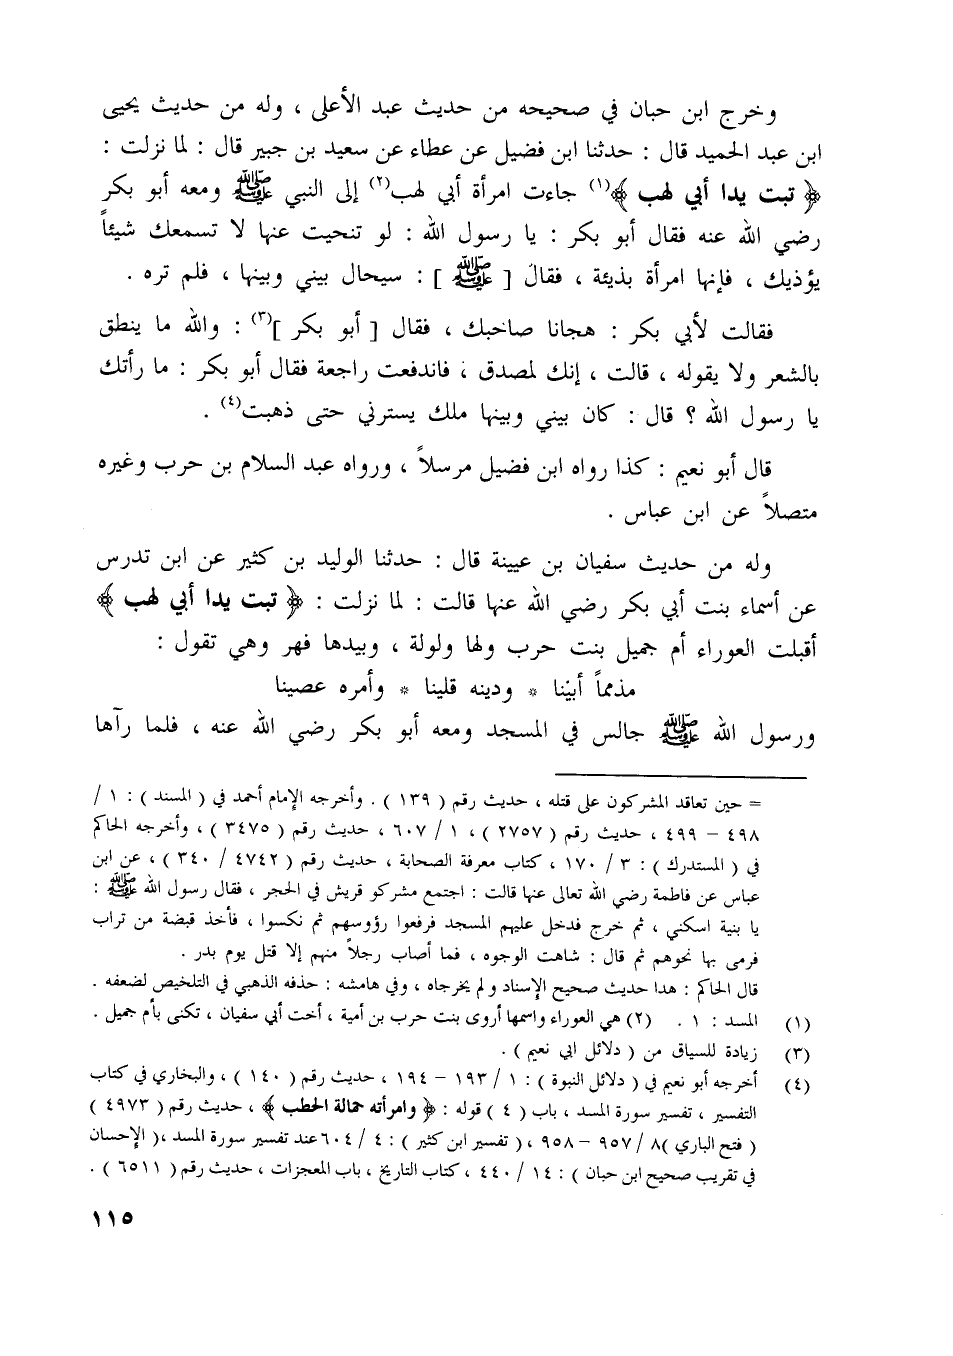 وخرج ابن حبان في صحيحه من حديث عبد الأعلى ، وله من حديث يحيى
ابن عبد الحميد قال : حدثنا ابن فضيل عن عطاء عن سعيد بن جبير قال : لما نزلت :
﴿ تبت يدا أبي لهب ﴾(١) جاءت امرأة أبي لهب(٢) إلى النبي ﷺ ومعه أبو بكر
رضي الله عنه فقال أبو بكر : يا رسول الله : لو تنحيت عنها لا تسمعك شيئاً
يؤذيك ، فإنها امرأة بذيئة ، فقال [ ﷺ ] : سيحال بيني وبينها ، فلم تره .
فقالت لأبي بكر : هجانا صاحبك ، فقال [ أبو بكر ](٣) : والله ما ينطق
بالشعر ولا يقوله ، قالت ، إنك لمصدق ، فاندفعت راجعة فقال أبو بكر : ما رأتك
يا رسول الله ؟ قال : كان بيني وبينها ملك يسترني حتى ذهبت(٤) .
قال أبو نعيم : كذا رواه ابن فضيل مرسلاً ، ورواه عبد السلام بن حرب وغيره
متصلاً عن ابن عباس .
وله من حديث سفيان بن عيينة قال : حدثنا الوليد بن كثير عن ابن تدرس
عن أسماء بنت أبي بكر رضي الله عنها قالت : لما نزلت : ﴿ تبت يدا أبي لهب ﴾
أقبلت العوراء أم جميل بنت حرب ولها ولولة ، وبيدها فهر وهي تقول :
مذمماً أبيْنا * ودينه قلينا * وأمره عصينا
ورسول الله ﷺ جالس في المسجد ومعه أبو بكر رضي الله عنه ، فلما رآها
= حين تعاقد المشركون على قتله ، حديث رقم ( ١٣٩ ) . وأخرجه الإمام أحمد في ( المسند ) : ١ /
٤٩٨ – ٤٩٩ ، حديث رقم ( ٢٧٥٧ ) ، ١ / ٦٠٧ ، حديث رقم ( ٣٤٧٥ ) ، وأخرجه الحاكم
في ( المستدرك ) : ٣ / ١٧٠ ، كتاب معرفة الصحابة ، حديث رقم ( ٤٧٤٢ / ٣٤٠ ) ، عن ابن
عباس عن فاطمة رضي الله تعالى عنها قالت : اجتمع مشركو قريش في الحجر ، فقال رسول الله ﷺ :
يا بنية اسكني ، ثم خرج فدخل عليهم المسجد فرفعوا رؤوسهم ثم نكسوا ، فأخذ قبضة من تراب
فرمى بها نحوهم ثم قال : شاهت الوجوه ، فما أصاب رجلاً منهم إلا قتل يوم بدر .
قال الحاكم : هذا حديث صحيح الإسناد ولم يخرجاه ، وفي هامشه : حذفه الذهبي في التلخيص لضعفه .
(١) المسد : ١ . (٢) هي العوراء واسمها أروى بنت حرب بن أمية ، أخت أبي سفيان ، تكنى بأم جميل .
(٣) زيادة للسياق من ( دلائل ابي نعيم ) .
(٤) أخرجه أبو نعيم في ( دلائل النبوة ) : ١ / ١٩٣ – ١٩٤ ، حديث رقم ( ١٤٠ ) ، والبخاري في كتاب
التفسير ، تفسير سورة المسد ، باب ( ٤ ) قوله : ﴿ وامرأته حمالة الحطب ﴾ ، حديث رقم ( ٤٩٧٣ )
( فتح الباري )٨ / ٩٥٧ – ٩٥٨ ، ( تفسير ابن كثير ) : ٤ / ٦٠٤ عند تفسير سورة المسد ،( الإحسان
في تقريب صحيح ابن حبان ) : ١٤ / ٤٤٠ ، كتاب التاريخ ، باب المعجزات ، حديث رقم ( ٦٥١١ ) .
١١٥